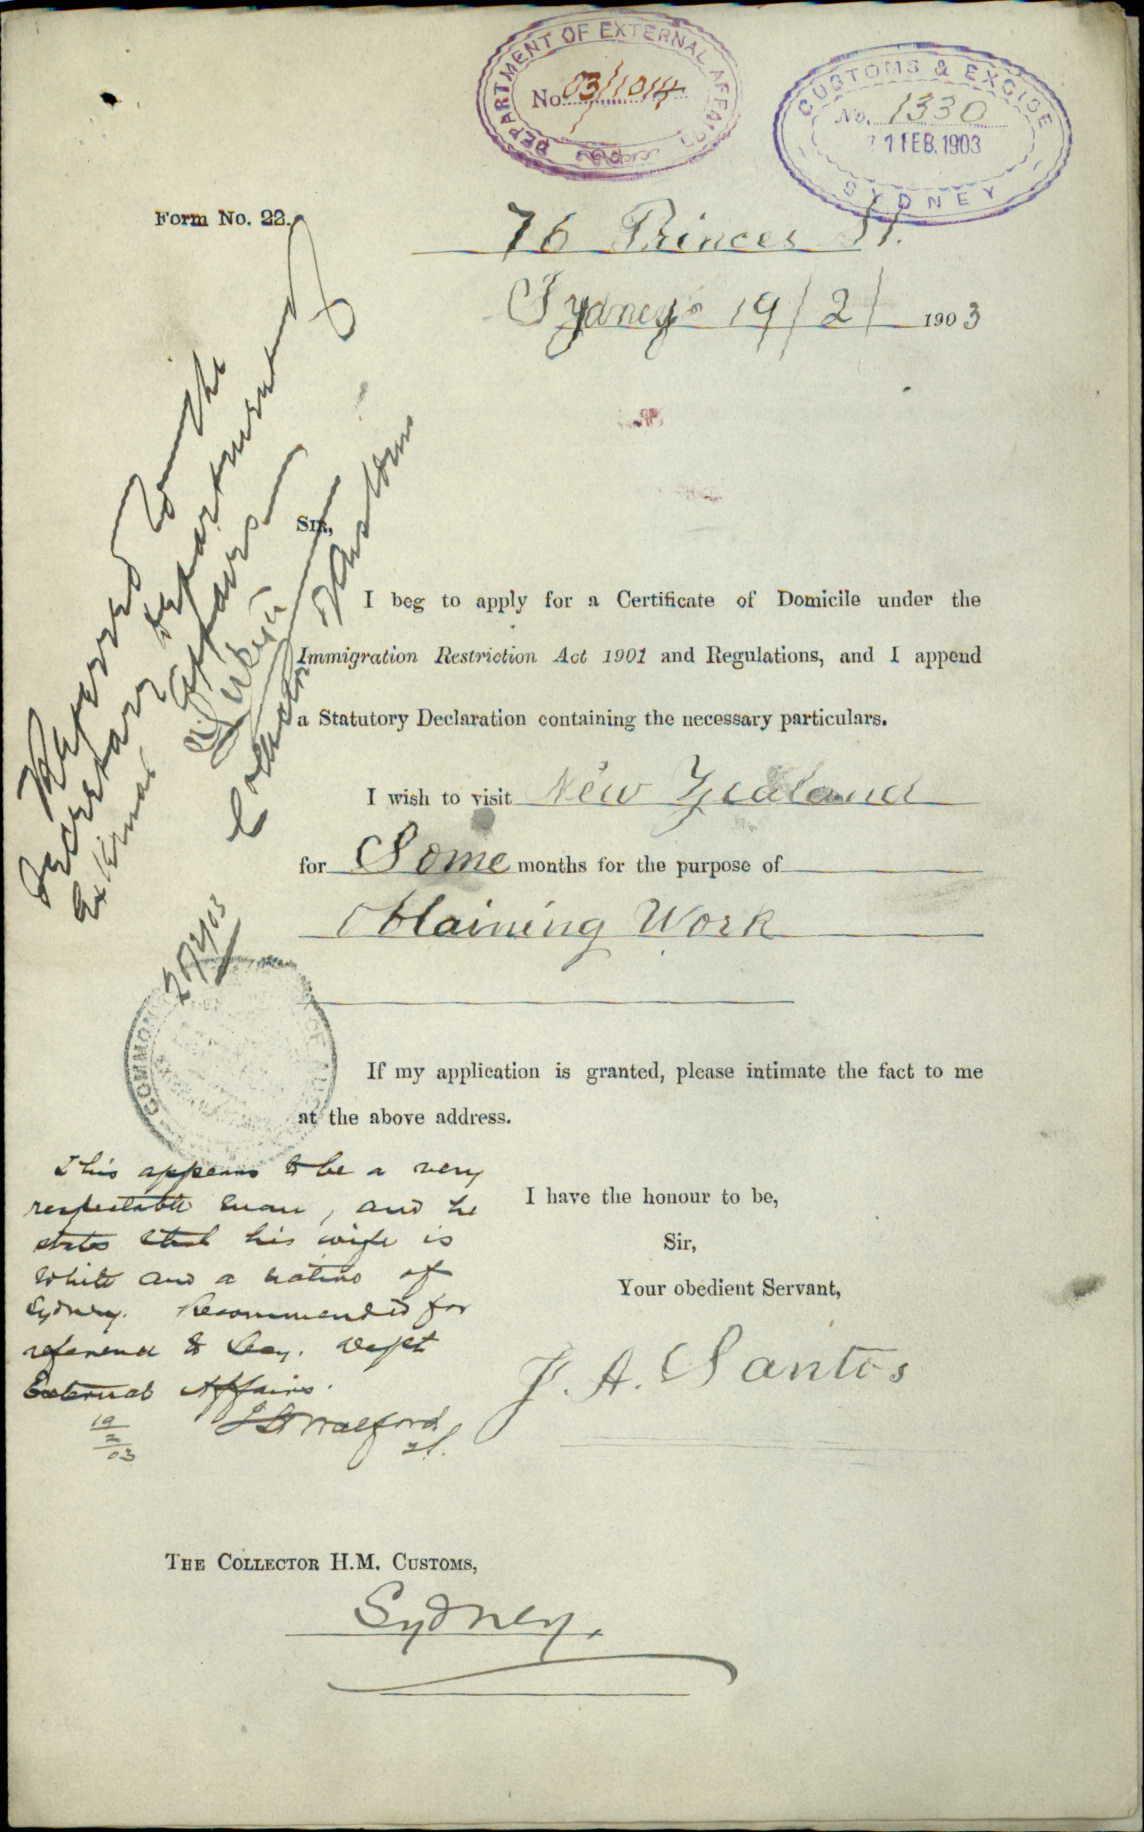 DEPARTMENT OF EXTERNAL AFFAIRS
No 03/1014
CUSTOMS & EXCISE
No. 1330
FEB. 1903
SYDNEY
Form No. 22.
76 Princes St.
Sydney 19/2/ 1903
Referred to the
Secretary Department
External Affairs
Collector of Customs
Sir,
I beg to apply for a Certificate of Domicile under the
Immigration Restriction Act 1901 and Regulations, and I append
a Statutory Declaration containing the necessary particulars.
I wish to visit New Zealand
for Some months for the purpose of
Obtaining Work
COMMON
If my application is granted, please intimate the fact to me
at the above address.
This appears to be a very
respectable man, and he
states that his wife is
white and a native of
Sydney. Recommended for
reference to Secy. Dept
External Affairs.
19
2
03
I have the honour to be,
Sir,
Your obedient Servant,
J. A. Santos
THE COLLECTOR H.M. CUSTOMS,
Sydney.